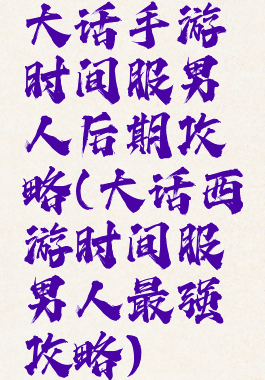 大话手游
时间服男
人后期攻
略(大话西
游时间服
男人最强
攻略)